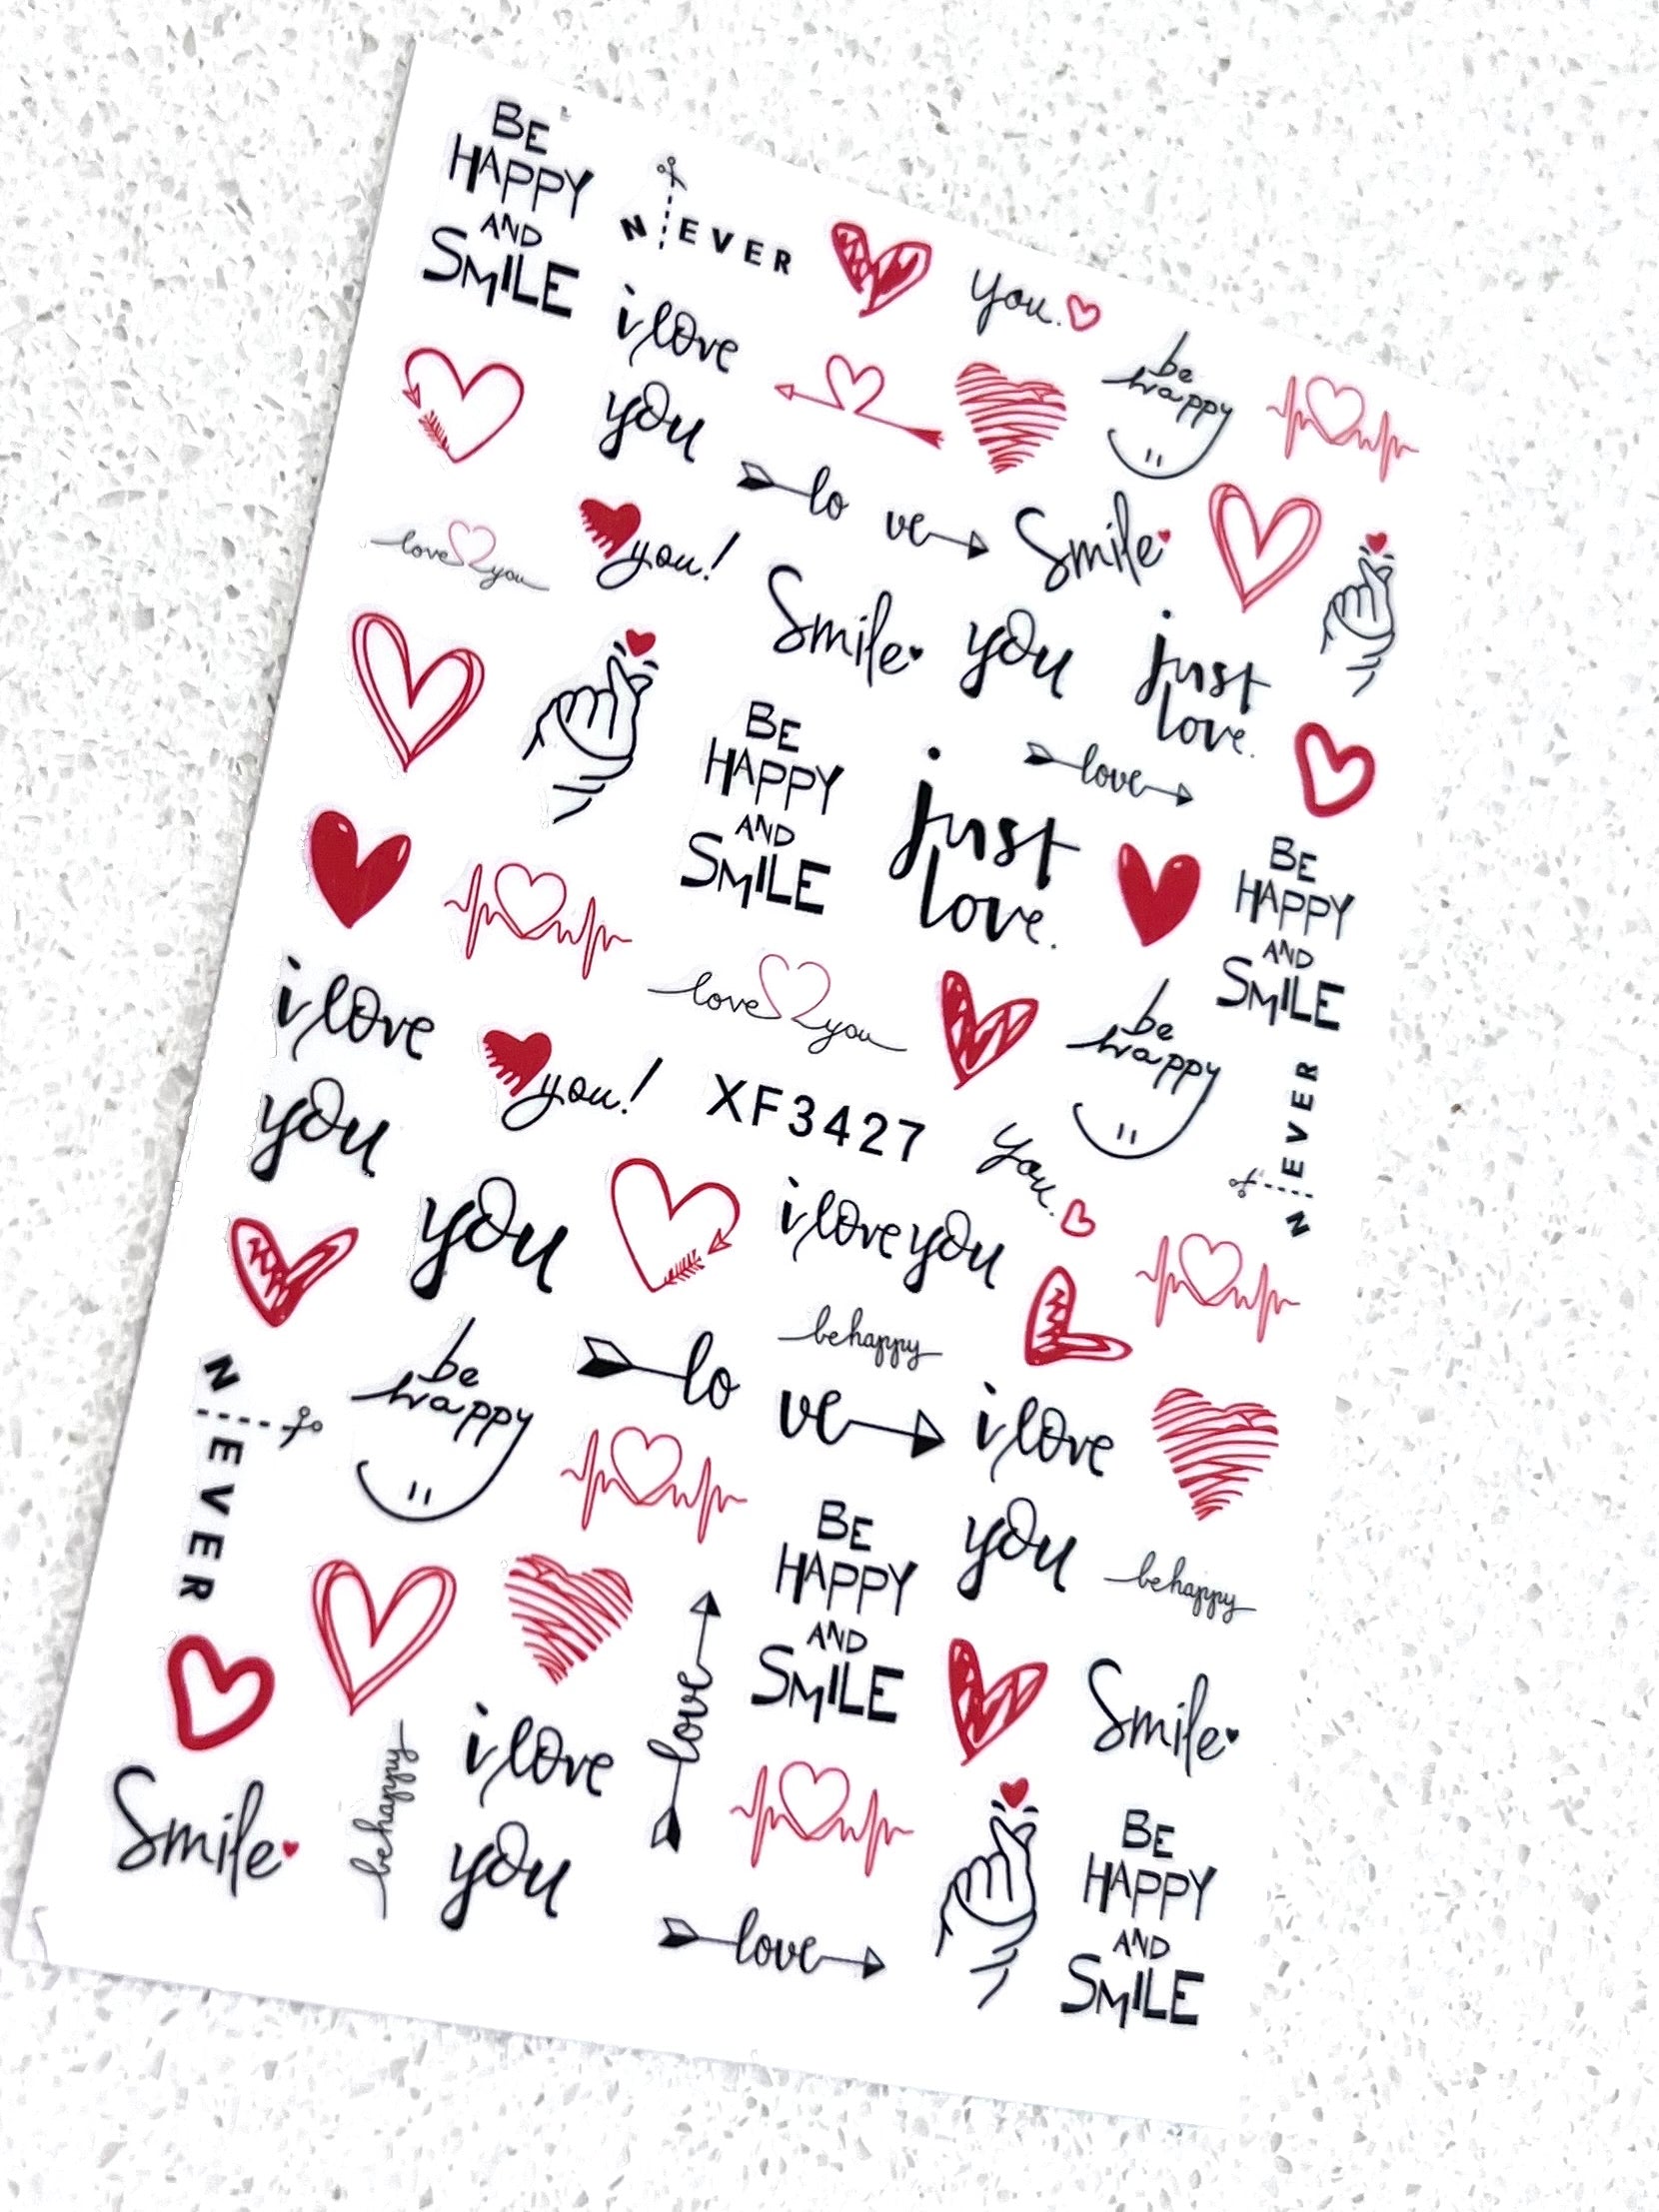 BE
HAPPY
AND
SMILE
N EVER
you.
i love
you
be
happy
lo ve
Smile
love you
you!
Smile
you
just
love.
BE
HAPPY
AND
SMILE
love
just
love.
BE
HAPPY
AND
SMILE
love you
be
happy
i love
you
you!
XF3427
N EVER
you.
you
i love you
be happy
N EVER
be
happy
lo ve
i love
you
BE
HAPPY
AND
SMILE
be happy
love
Smile
Smile
be happy
i love
you
love
BE
HAPPY
AND
SMILE